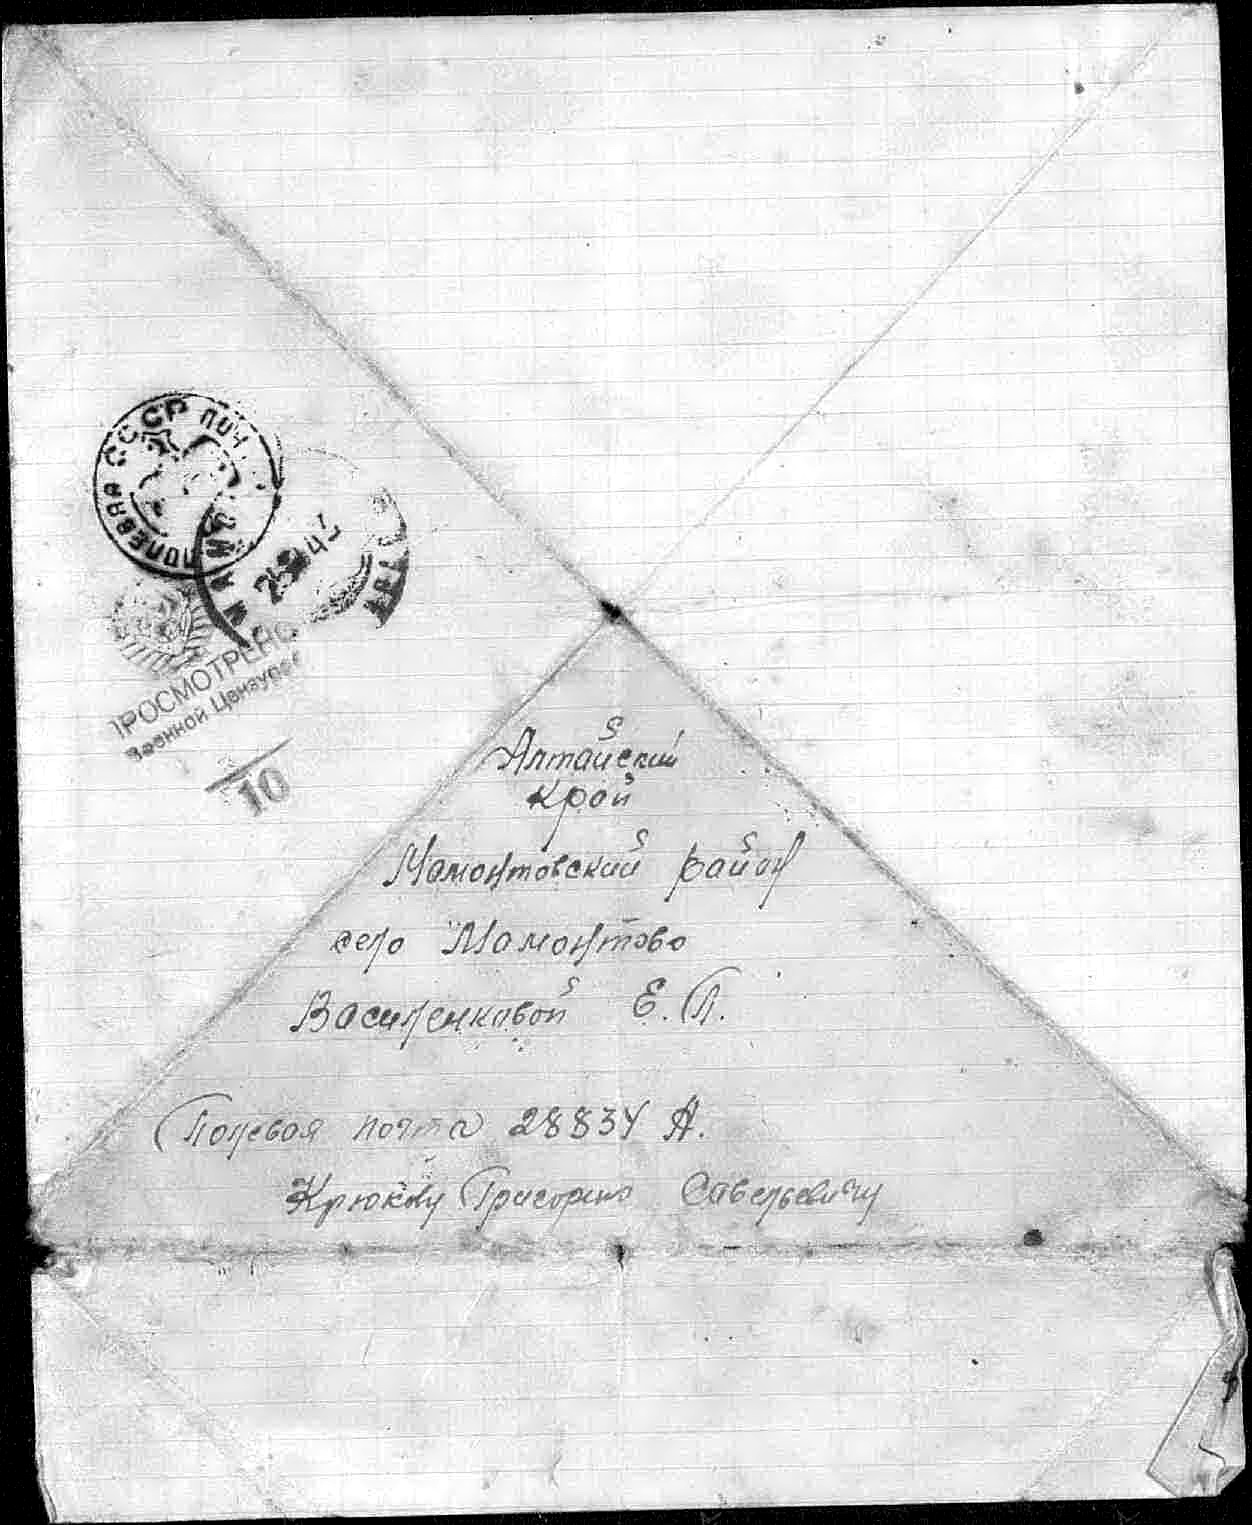 ПОЛЕВАЯ СССР ПОЧ
25 43
ПРОСМОТРЕНО
Военной Цензурой
10
Алтайский
Край
Мамонтовский район
село Мамонтово
Василенковой Е. П.
Полевая почта 28834 А.
Крюкову Григорию Савельевичу